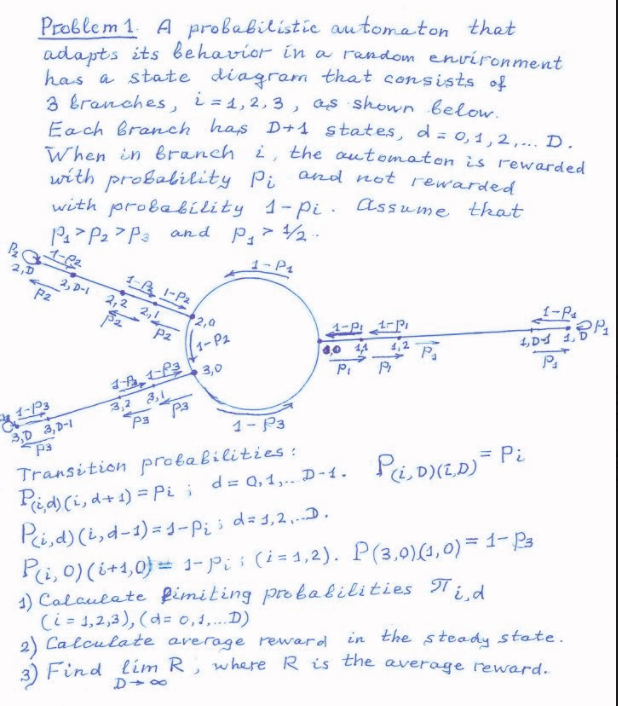 Problem 1. A probabilistic automaton that
adapts its behavior in a random environment
has a state diagram that consists of
3 branches, i = 1,2,3, as shown below.
Each branch has D+1 states, d = 0,1,2,... D.
When in branch i, the automaton is rewarded
with probability Pi and not rewarded
with probability 1-pi. Assume that
P1 > P2 > P3 and P1 > 1/2.
P2 1-P2 1-P1
2,D 2,D-1 1-P2 1-P2
P2 2,2 2,1 2,0 1-P1
P2 P2 1-P1 1-P1 P1
1-P2 0,0 1,1 1,2 P1 1,D-1 1,D
1-P3 1-P3 3,0 P1 P1 P1
1-P3 3,2 3,1
3,D 3,D-1 P3 P3 1-P3
P3
Transition probabilities:
P(i,d)(i,d+1) = Pi ; d = 0,1,.. D-1. P(i,D)(i,D) = Pi
P(i,d)(i,d-1) = 1-Pi ; d = 1,2,..D.
P(i,0)(i+1,0) = 1-Pi ; (i = 1,2). P(3,0)(1,0) = 1-P3
1) Calculate limiting probabilities πi,d
(i = 1,2,3), (d = 0,1,...D)
2) Calculate average reward in the steady state.
3) Find lim R, where R is the average reward.
D→∞